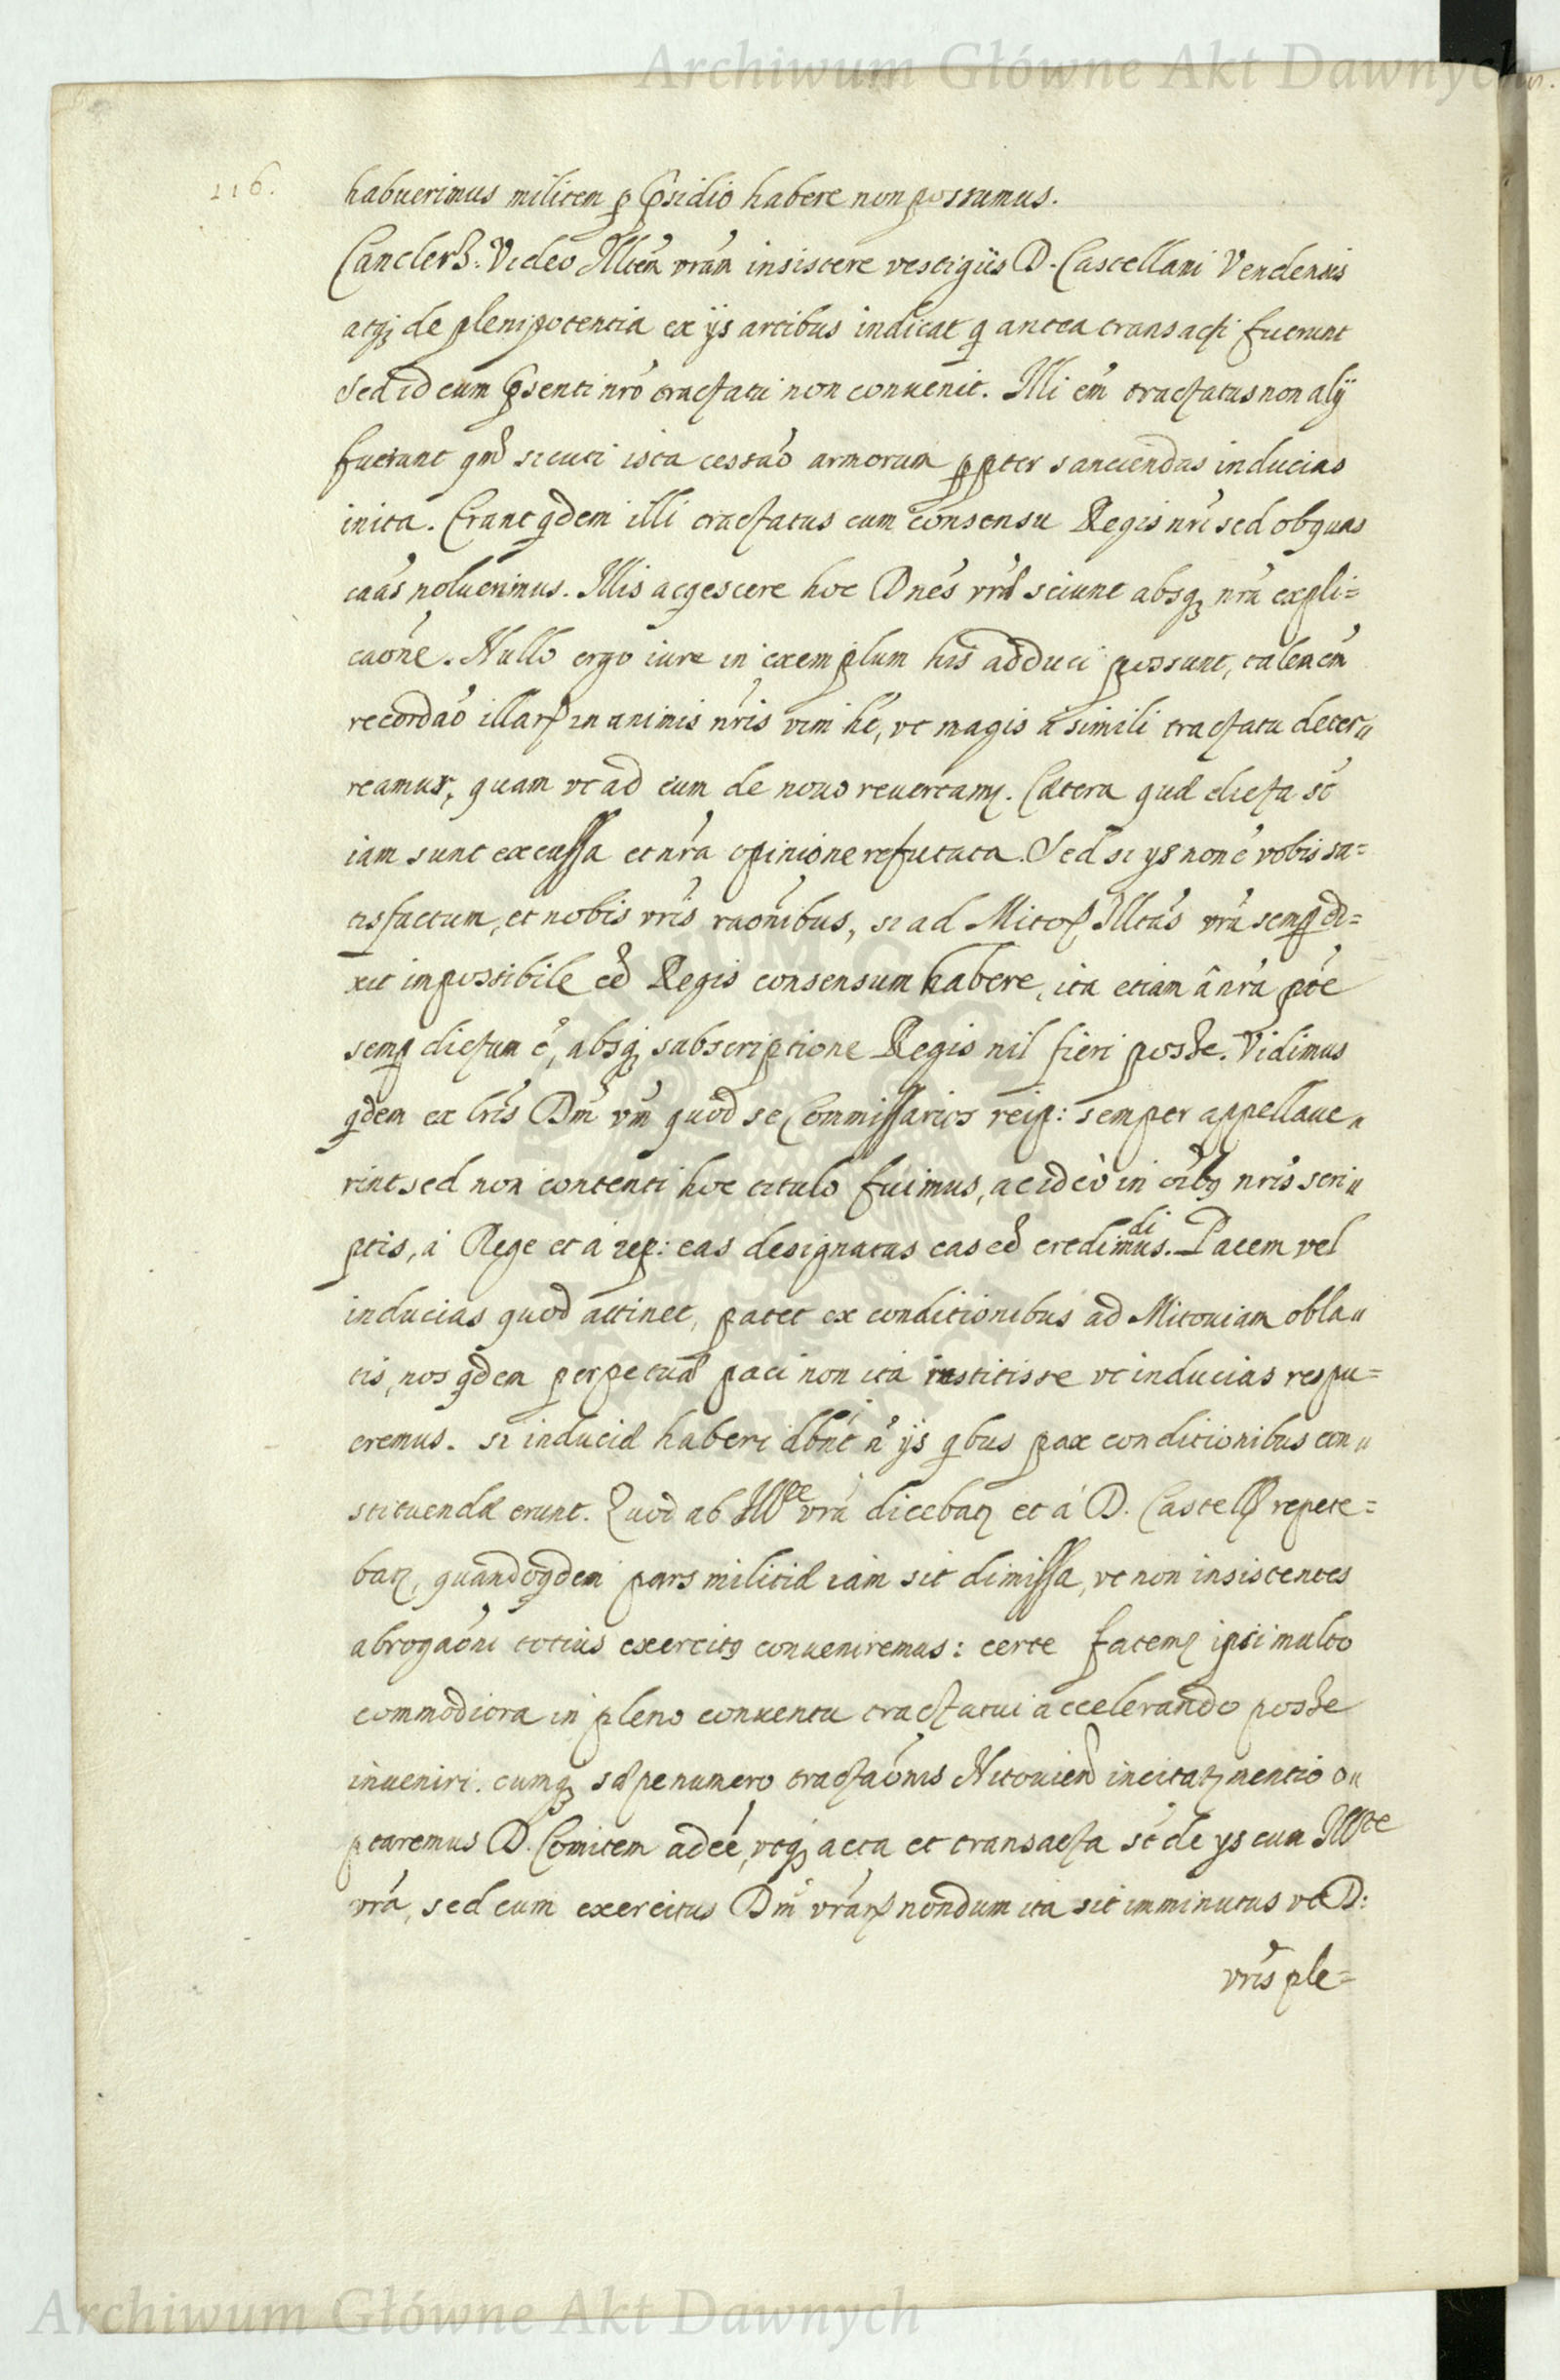 Archiwum Główne Akt Dawnych
116.
habuerimus militem p p̃sidio habere non possumus.
Cancler9: Video Illtem̃ vrãm insistere vestigiis D. Castellani Vendensis
atq; de plenipotentia ex ijs artibus indicat q̃ antea transacti fuerunt
Sed id cum p̃senti nrõ tractatu non conuenit. Illi em̃ tractatus non alij
fuerunt qm̃ sicuti ista cessaõ armorum ꝓpter sanciendas inducias
inita. Erant qdem illi tractatus cum consensu Regis nri sed ob quas
caãs noluerimus. Illis acqescere hoc Dnẽs vræ sciunt absq; nrã expli=
caõne. Nullo ergo iure in exemplum his adduci possunt, talem em̃
recordaõ illarꝝ in animis nrĩs vim hẽt, vt magis à simili tractatu deter„
reamur, quam vt ad eum de nouo reuertamꝰ. Cætera quæ dicta sẽ
iam sunt excussa et nrã opinione refutata. Sed si ys non ẽ vobis sa=
tisfactum, et nobis vrĩs raõnibus, si ad Mitoꝝ Illtãs vrã semꝑ di=
xit impossibile eẽ Regis consensum habere, ita etiam â nrã ptẽ
semꝑ dictum ẽ, absq; subscriptione Regis nil fieri posse. Vidimus
qdem ex lrĩs Dm̃ vm̃ quod se Commissarios reip: semper appellaue„
rint sed non contenti hoc titulo fuimus, ac ideò in oĩbꝰ nrĩs scri„
ptis, à Rege et à rep: eas designatas eas eẽ credidimus. Pacem vel
inducias quod attinet, patet ex conditionibus ad Mitouiam obla„
tis, nos qdem perpetuæ paci non ita institisse vt inducias respu=
eremus. si induciæ haberi dbnt̃ ñ ijs qbus pax conditionibus con„
stituendæ erunt. Quod ab Illte vrã dicebatꝰ et à D. Castellꝰ repete=
batꝰ, quandoqdem pars militiæ iam sit dimissa, vt non insistentes
abrogaõni totius exercitꝰ conueniremus: certe fatemꝰ ipsi multo
commodiora in pleno conuentu tractatui accelerando posse
inueniri. cumq; sæpenumero tractaõnis Mitouien̄ incitatꝰ mentio o„
ptaremus D. Comitem adeẽ, vtq; acta et transacta sẽ de ys cum Illte
vrã, sed cum exercitus Dm̃ vrãrꝝ nondum ita sit imminutus vt D:
vrĩs ple=
Archiwum Główne Akt Dawnych